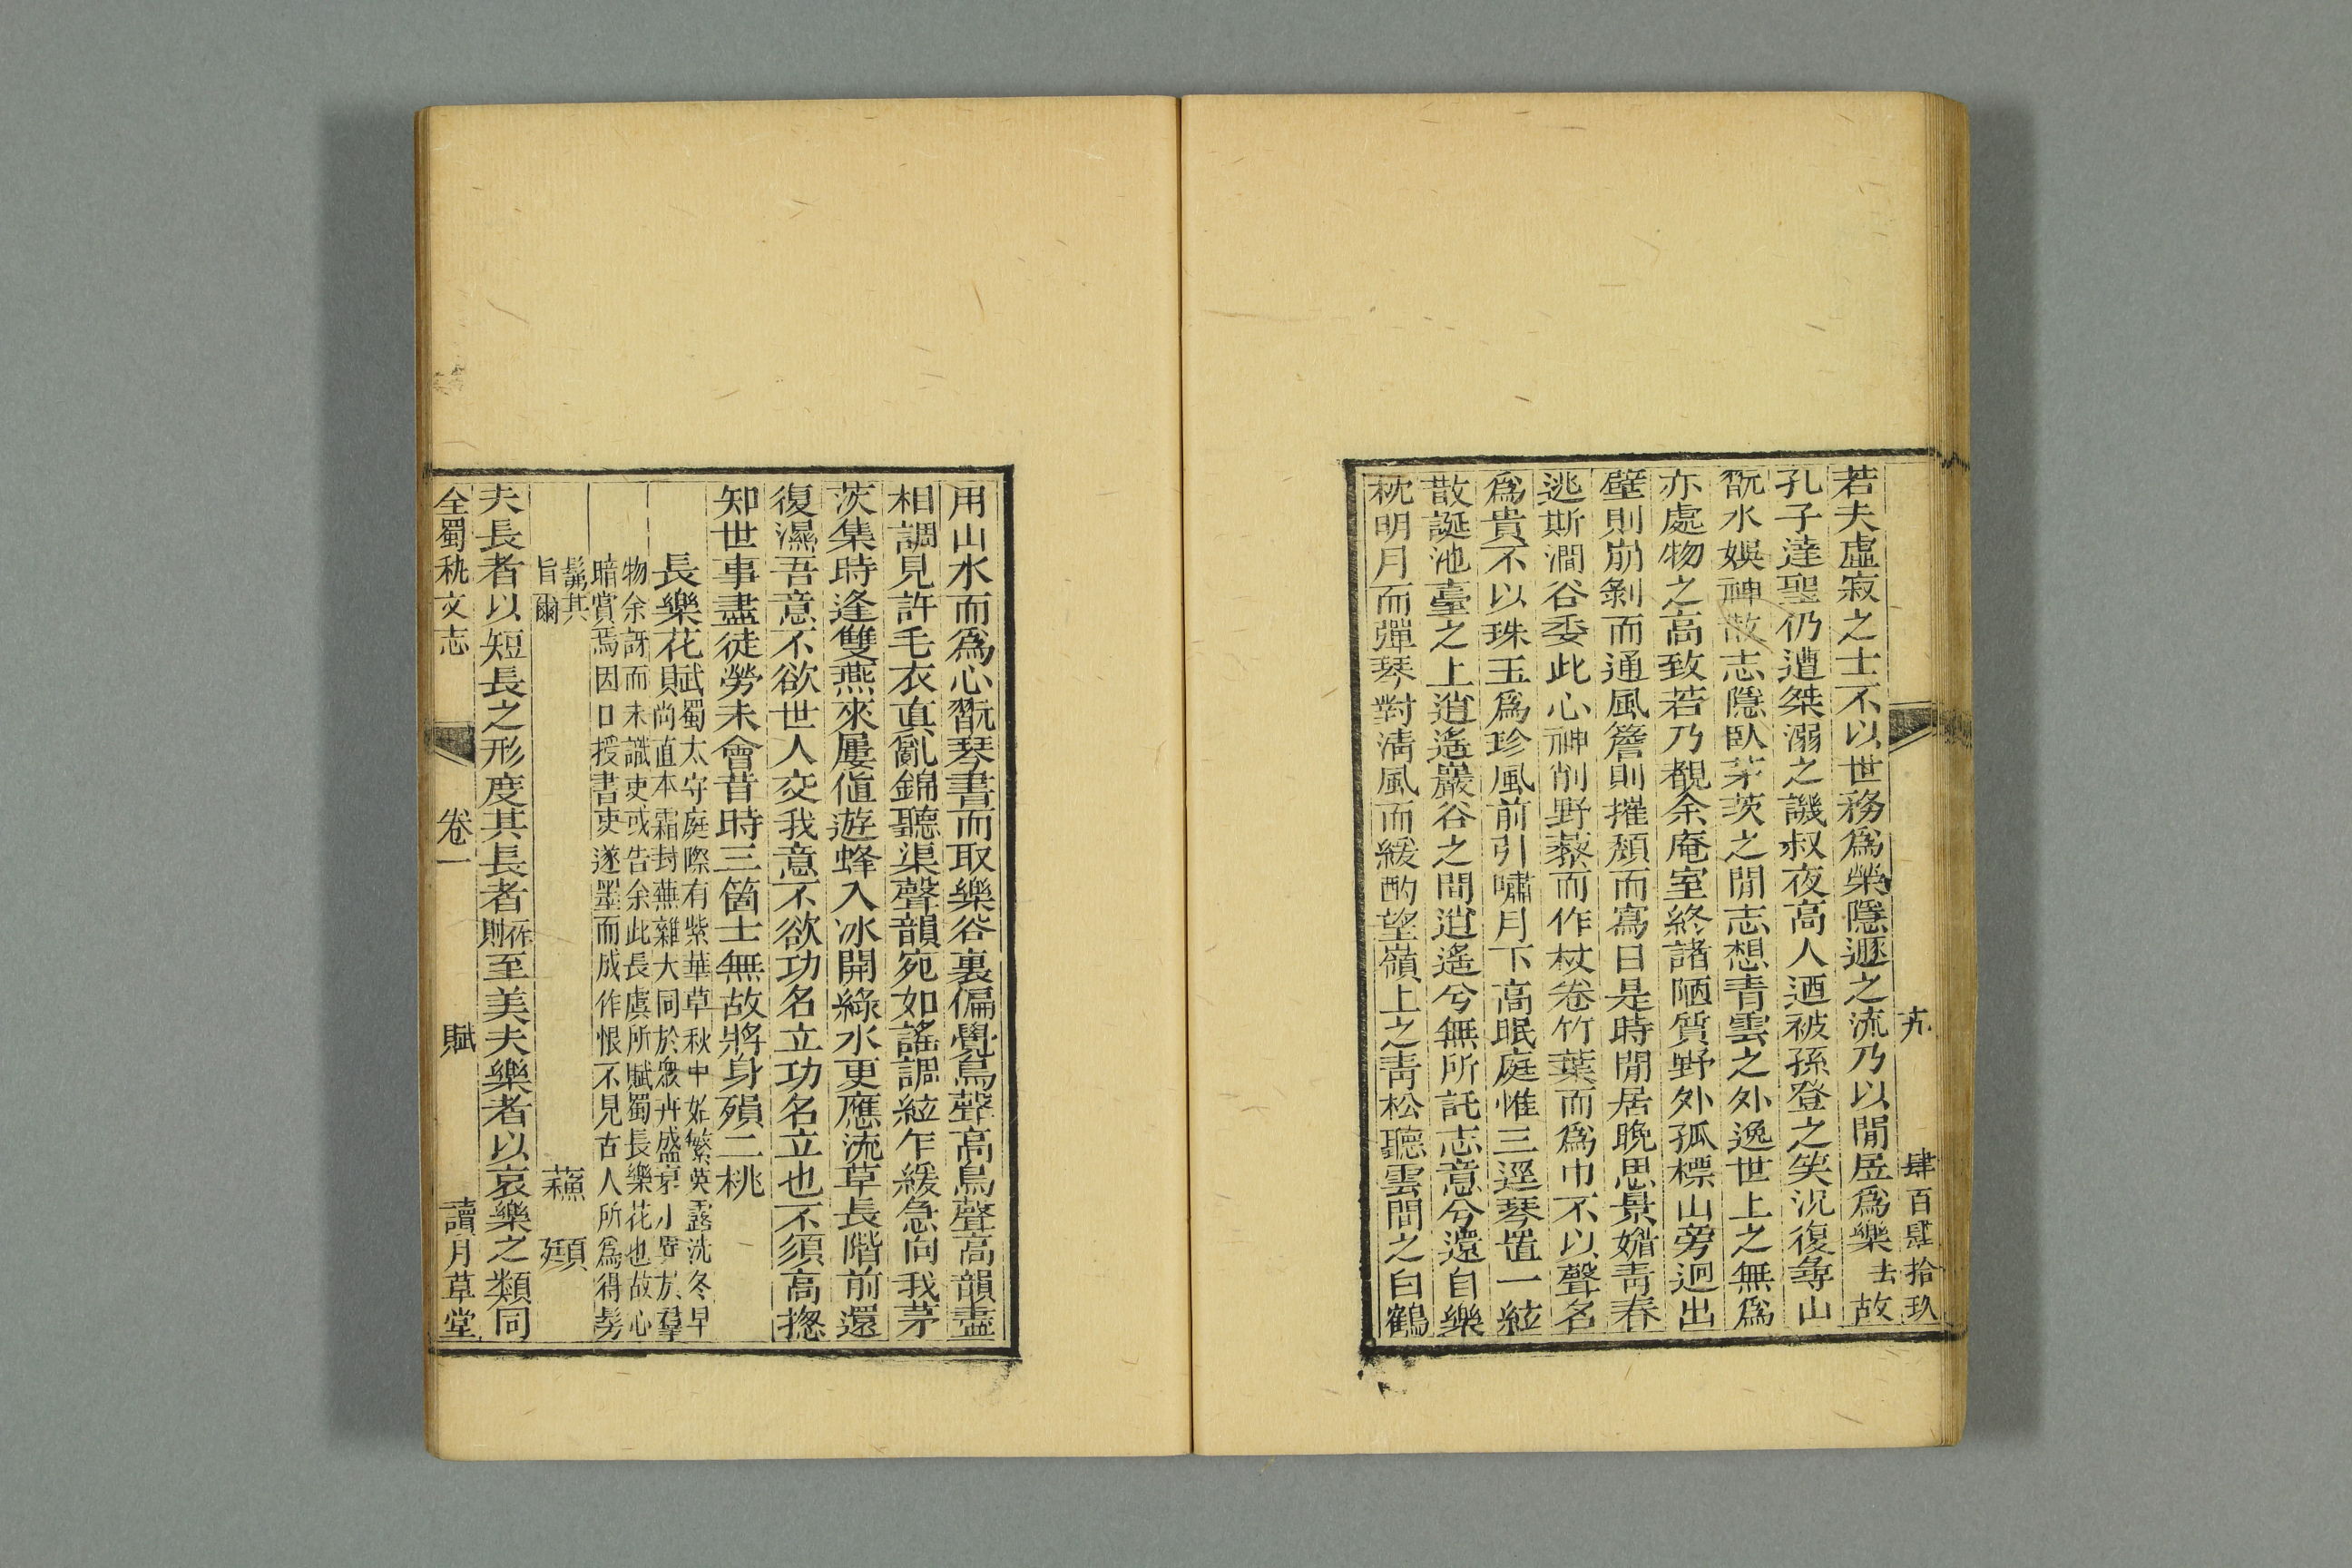 卄九　肆百肆拾玖
若夫虛寂之士不以世務爲榮隱遯之流乃以閒居爲樂去故
孔子達聖仍遭桀溺之譏叔夜高人迺被孫登之笑況復尋山
翫水娛神散志隱臥茅茨之閒志想青雲之外逸世上之無爲
亦處物之高致若乃覩余庵室終諸陋質野外孤標山旁迥出
壁則崩剝而通風簷則摧頹而寫日是時閒居晩思景媚青春
逃斯澗谷委此心神削野藜而作杖卷竹葉而爲巾不以聲名
爲貴不以珠玉爲珍風前引嘯月下高眠庭惟三逕琴置一絃
散誕池臺之上逍遙巖谷之間逍遙兮無所託志意兮還自樂
枕明月而彈琴對淸風而緩酌望嶺上之青松聽雲間之白鶴
用山水而爲心翫琴書而取樂谷裏偏覺鳥聲高鳥聲高韻盡
相調見許毛衣眞亂錦聽渠聲韻宛如謠調絃乍緩急向我茅
茨集時逢雙燕來屢値遊蜂入冰開綠水更應流草長階前還
復濕吾意不欲世人交我意不欲功名立功名立也不須高摠
知世事盡徒勞未會昔時三箇士無故將身殞二桃
長樂花賦蜀太守庭際有紫華草秋中始繁英露洗冬早
尚直本霜封蕪雜大同於衆卉盛衰小異於羣
物余訝而未識吏或告余此長虞所賦蜀長樂花也故心
暗賞焉因口授書吏遂墨而成作恨不見古人所爲得髣
髴其
旨爾
蘇　頲
夫長者以短長之形度其長者作則至美夫樂者以哀樂之類同
全蜀秇文志　卷一　賦　讀月草堂